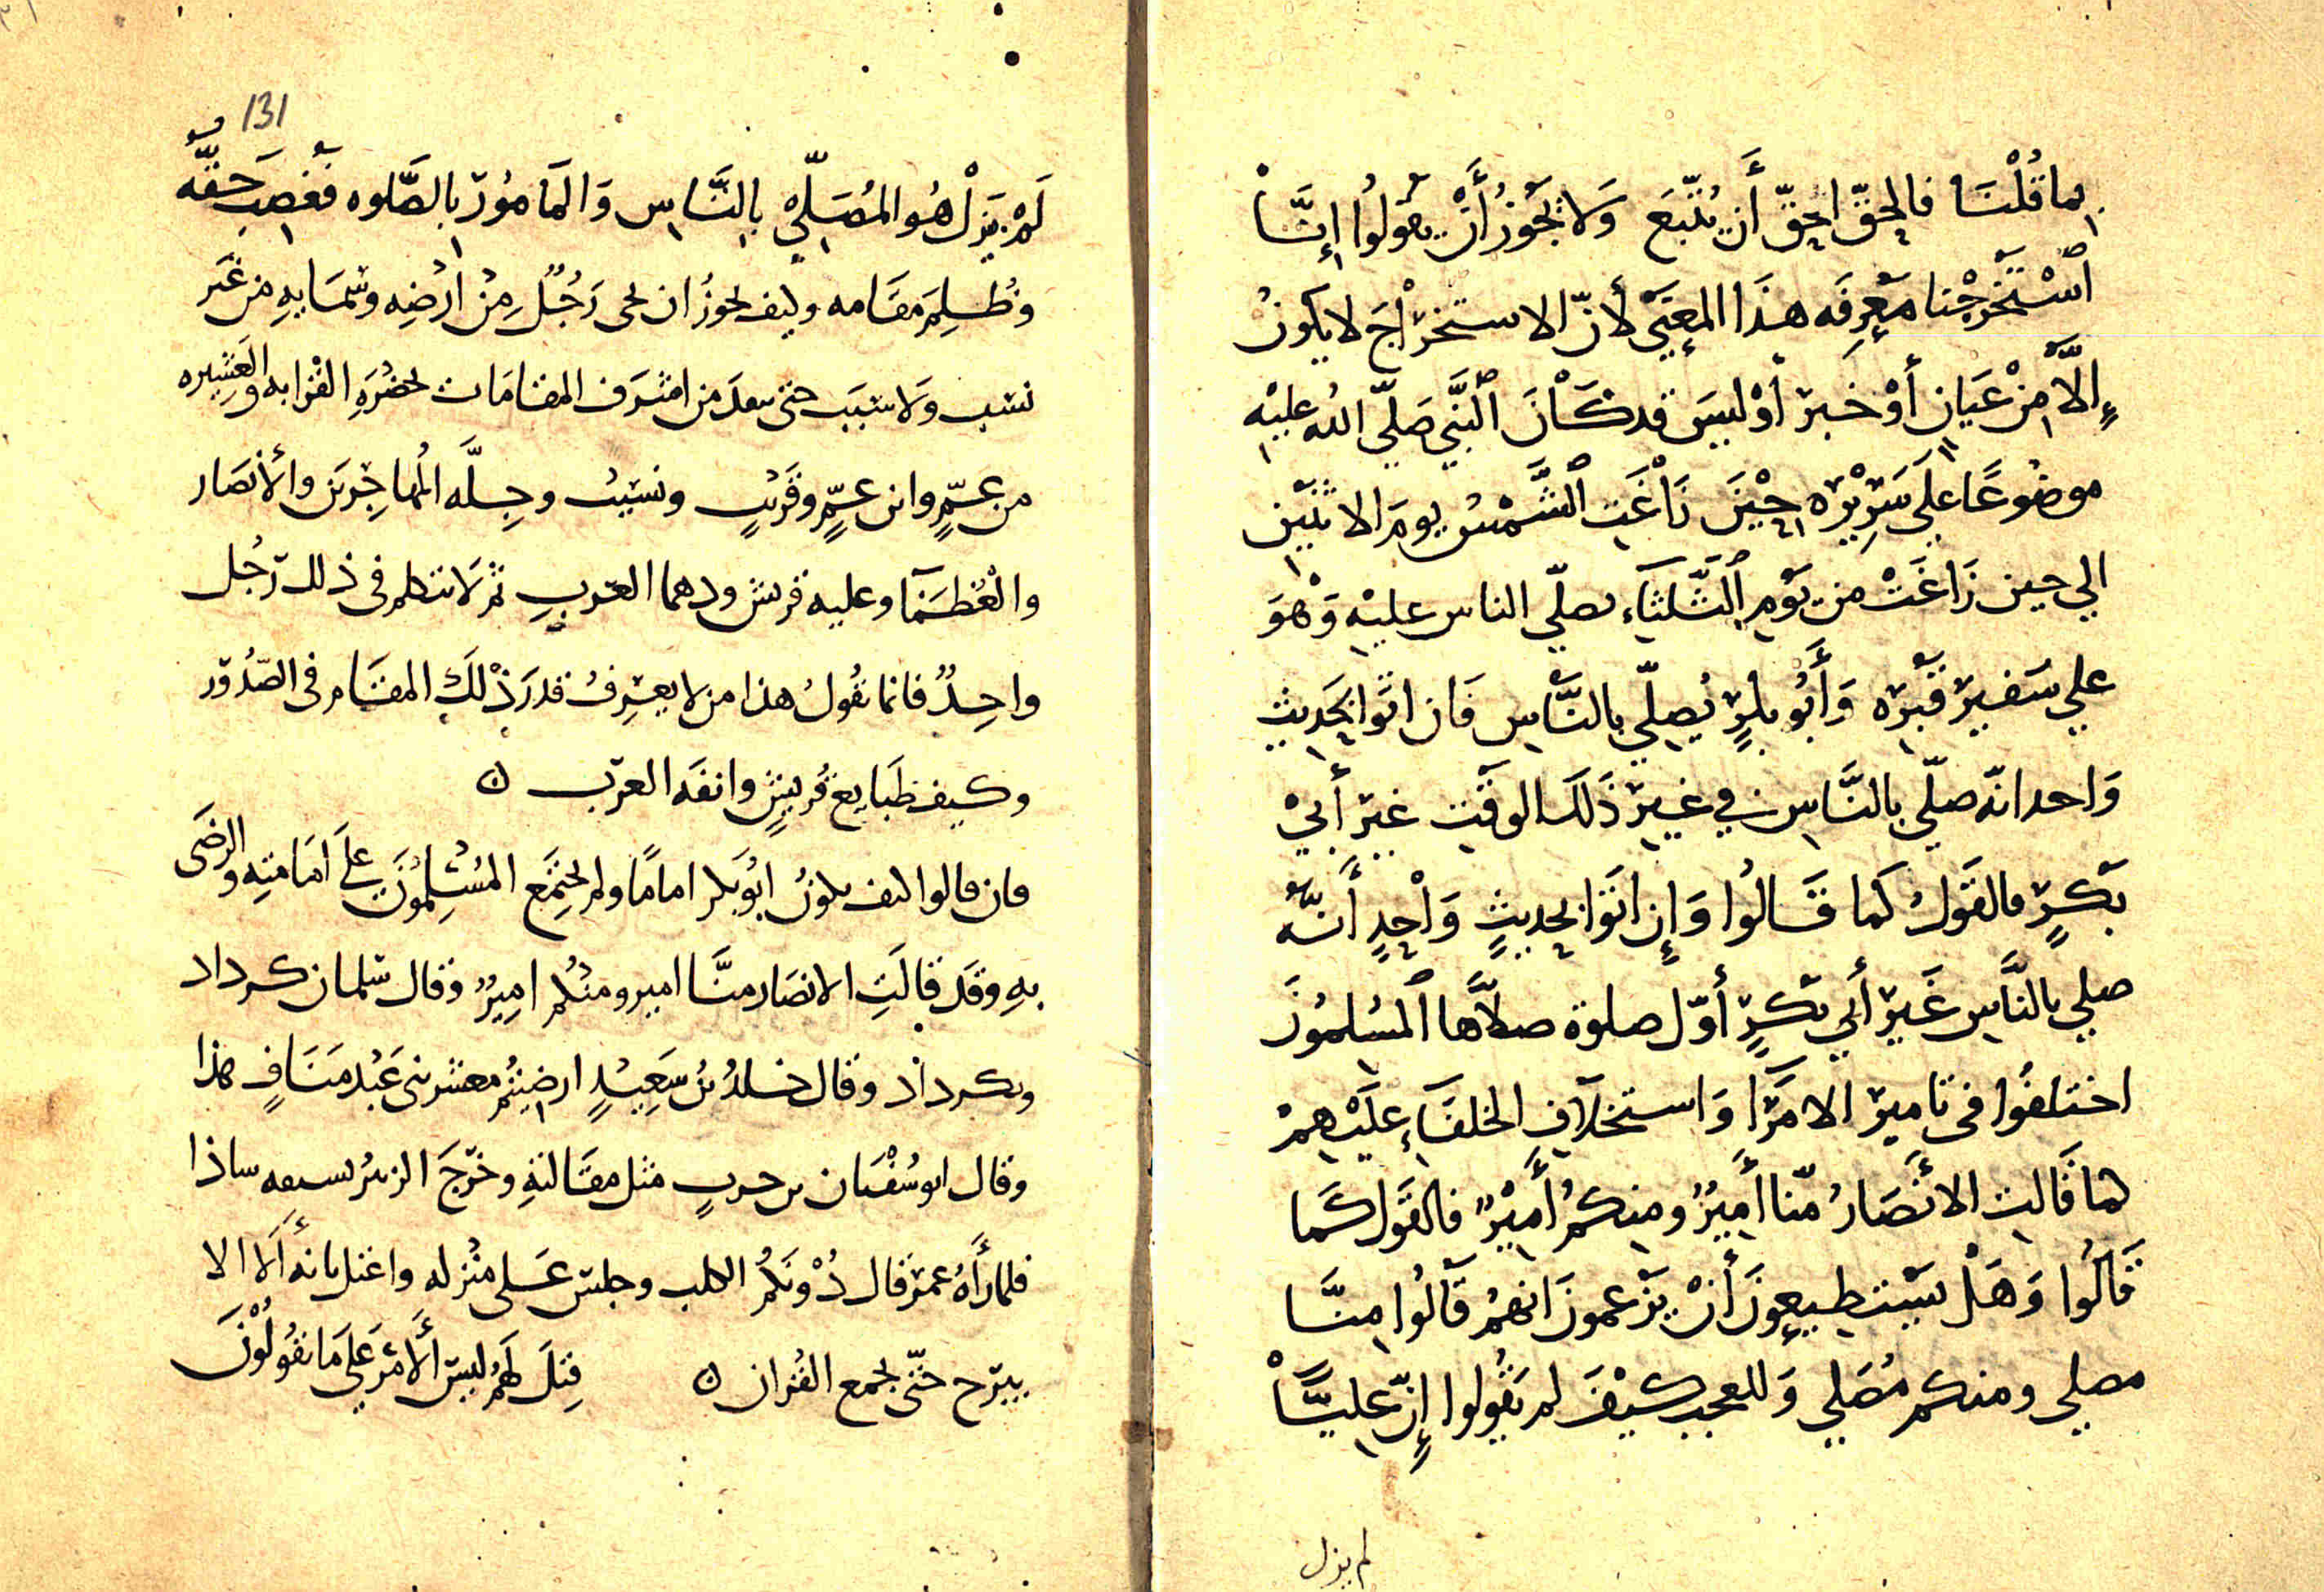 بما قُلْنَا فالحقّ احقّ أن يُتّبَعَ وَلا يَجُوزُ أَنْ يقولُوا إنَّا
ٱسْتَخرَجْنا مَعْرِفَه هذَا المعْنَي لأنّ الاستخرْاجَ لا يكونُ
إلَّا مِنْ عَيانٍ أوْ خَبرٍ أوْ ليسَ قد كَانَ ٱلنَّبي صَلّي الله عليْه
موضُوعًا علي سَرِيْرِه حِيْنَ زَاْغَت ٱلشَّمْسُ يومَ الاثنَيْنِ
الي حين زَاغَتْ من يَوْمِ ٱلثَّلثَاءِ يصلّي الناس عليْه وَهْوَ
علي شَفيرِ قَبْرِه وَأَبُو بكرٍ يُصلّي بالنَّاْسِ فَان اتَوا بحَديثٍ
وَاحد انّه صلّي بالنَّاسِ في غيرِ ذَلكَ الوقْتِ غيرَ أبيْ
بَكرٍ فالقَولُ كَما قَالُوا وَإن اتَوا بحديثٍ وَاْحِدٍ أَنَّهُ
صلي بالنَّاسِ غَيرَ أبي بَكرٍ أوّل صلوة صلَّاها ٱلمُسْلمُونَ
اختلفُوا في تاميرِ الامَرَا وَاستخلَافِ الخلفَاءِ عليْهِمْ
كما قَالتِ الأنْصَارُ منّا أَميرٌ ومنكمْ أَميْرٌ فالقَول كَما
قَالُوا وَهَلْ يَستطيعونَ أنْ يَزعمونَ انهمْ قَالُوا منَّا
مصلي ومنكم مُصَلي وَللعجب كيْفَ لم يَقُولوا إنّ عليَّاْ
لم يزل
131
لَمْ يَزلْ هُو المُصَلّيْ بالنَّاسِ وَالمَامُورُ بالصَّلوه فَغُصِبَ حَقَّه
وَظُلِمَ مقَامه وكيف يجوزُ ان يحي رَجُلٌ مِنْ ارْضِه وسَمَايهِ من غَيرِ
نسَبٍ وَلا سَبَبٍ حتى يبعدَ من اشْرَف المقامَات بحضْرَهِ القَرَابه والعَشِيره
من عَمٍّ وابن عمٍّ وقَريْبٍ ونسَيْبٍ وجِلَّه المُهاجِرِينَ والأنصَار
والعُظَمَا وعليه قريش ودهما العَربِ ثم لا يتكلم في ذلك رَجُل
واحِدٌ فانما يقُولُ هذا من لا يعْرِفُ قدرَ ذْلكَ المقَام في الصّدُور
وكيف طَبَايع قُريشٍ وانفَه العرَب ن
فان قالوا كيف يكونُ ابُو بَكر امامًا ولم يَجتَمِع المُسْلِمُونَ علي امَامتِه والرضَى
بهِ وقَد قالَتِ الانصَار منَّا امير ومنْكُم امِيرٌ وقال سَلمان كرداد
وبكرداد وقال خلدُ بْنُ سَعِيْدٍ ارضِيتُم معشر بني عَبْد مَنَافٍ هذا
وقال ابو سُفْيَان بن حربٍ مثل مقَالتهِ وخَرَجَ الزبيرُ بسيفه ساذا
فلما رأَهُ عمر قال دُوْنَكمُ الكلب وجلسَ عَلي منْزله واعتل بانه أَلا لا
يبرَح حتّى يجمع القُران ن قِيلَ لَهُم ليسَ ألأَمْرُ علي مَا تقُولُونَ